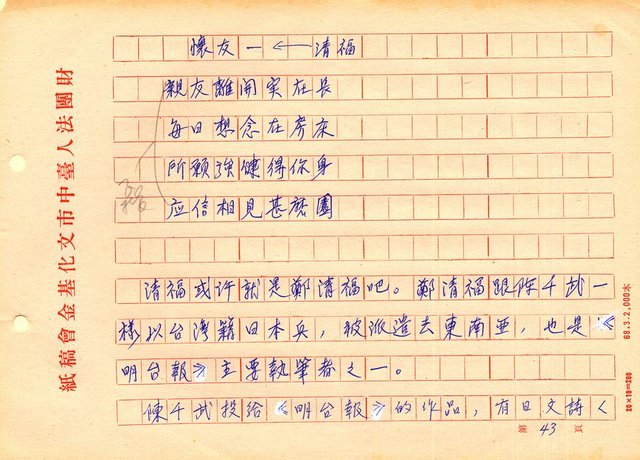 懷友一 ← 清福
親友離開实在長
每日想念在旁床
所願強健得你身
应信相見甚麽園
清福或许就是鄭清福吧。鄭清福跟陈千武一
樣以台湾籍日本兵，被派遣去東南亜，也是《
明台報》主要執筆者之一。
陳千武投給《明台報》的作品，有日文詩〈
第 43 頁
財團法人臺中市文化基金會稿紙
68.3-2,000本
20×10=200